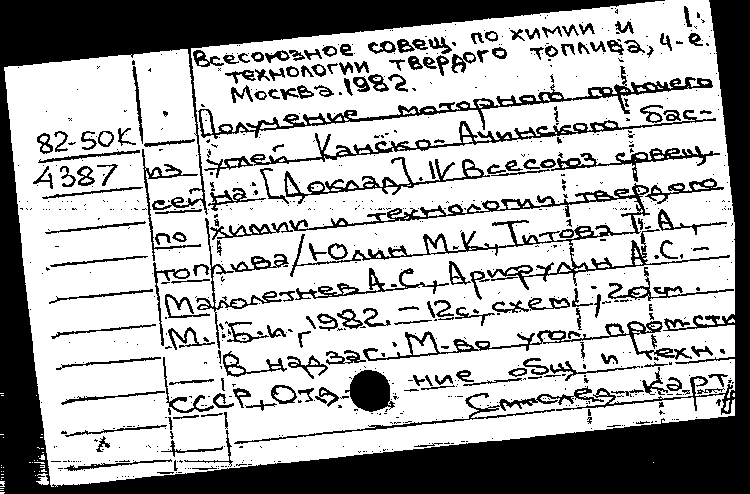 1.
Всесоюзное совещ. по химии и
технологии твердого топлива, 4-е.
Москва. 1982.
Получение моторного горючего
82-50К
4387
из углей Канско-Ачинского бас-
сейна: [Доклад]. IV Всесоюз. совещ.
по химии и технологии твердого
топлива/Юлин М.К., Титова Т.А.,
Малолетнев А.С., Арифулин А.С. –
М.: Б.и., 1982. – 12с., схем.; 20см.
В надзаг.: М-во угол. пром-сти
СССР, Отд- ние общ и техн.
См.след карт